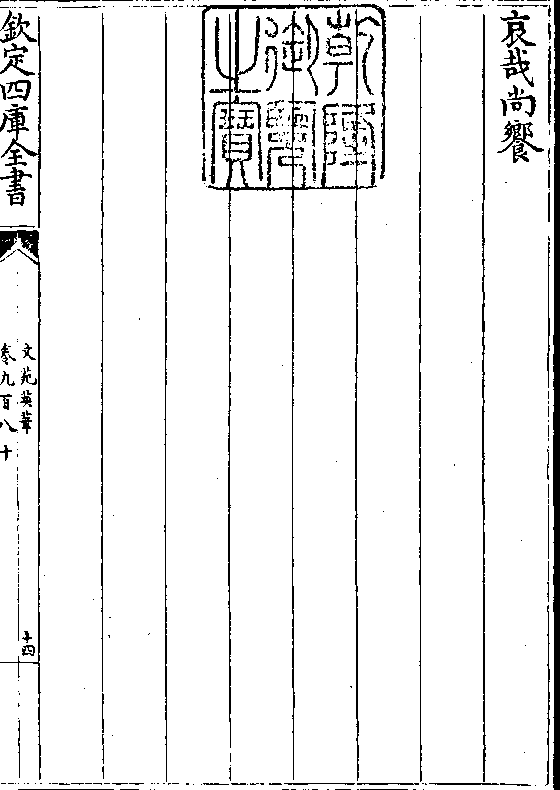 哀哉尚饗
乾隆
御覽
之寶
欽定四庫全書
文苑英華
卷九百八十
十四